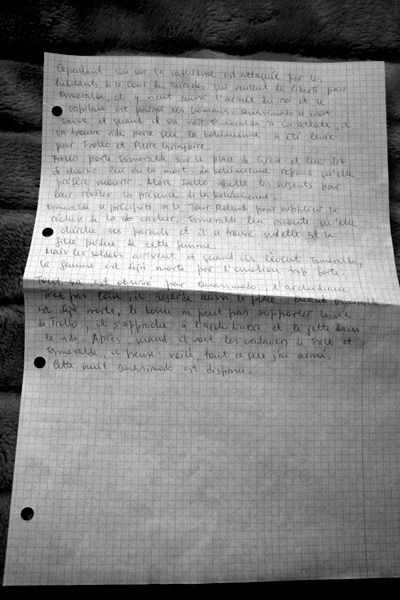 Cependant, un soir la cathédral est attaquée par les
habitants de la Cour des miracles qui veulent la liberté pour
Esmeralda, et vient aussi l'armée du roi et le
capitain est parmi ces hommes. Quasimodo se croit
sauvé et quand il va voir Esmeralda à sa cellule, il
la trouve vide parce que la bohémienne a été livré
par Frollo et Pierre Gringoire.
Frollo porte Esmeralda sur la place de Grève et lui dit
de choisir: lui ou la mort. La bohémienne répond qu'elle
préfère mourir. Alors Frollo apelle les sergents par
leur révéler la présence de la bohémienne.
Esmeralda se précipite à la Tour Rolande pour supplier la
recluse de la cacher. Esmeralda lui raconte qu'elle
cherche ses parents et il a trouvé qu'elle est la
fille perdue de cette femme.
Mais les soldats arrivent et quand ils lèvent Esmeralda,
la femme est déjà morte par l'émotion trop forte.
Tout ça est observé par Quasimodo, l'archidiacre
n'est pas loin, il regarde aussi la place. Quand Esmeralda
est déjà morte, le bossu ne peut pas supporter la vie
de Frollo, il s'approche à l'archidiacre et le jette dans
le vide. Après, quand il voit les cadavres de Frollo et
Esmeralda, il pense: voilà, tout ce que j'ai aimé.
Cette nuit Quasimodo est disparu.